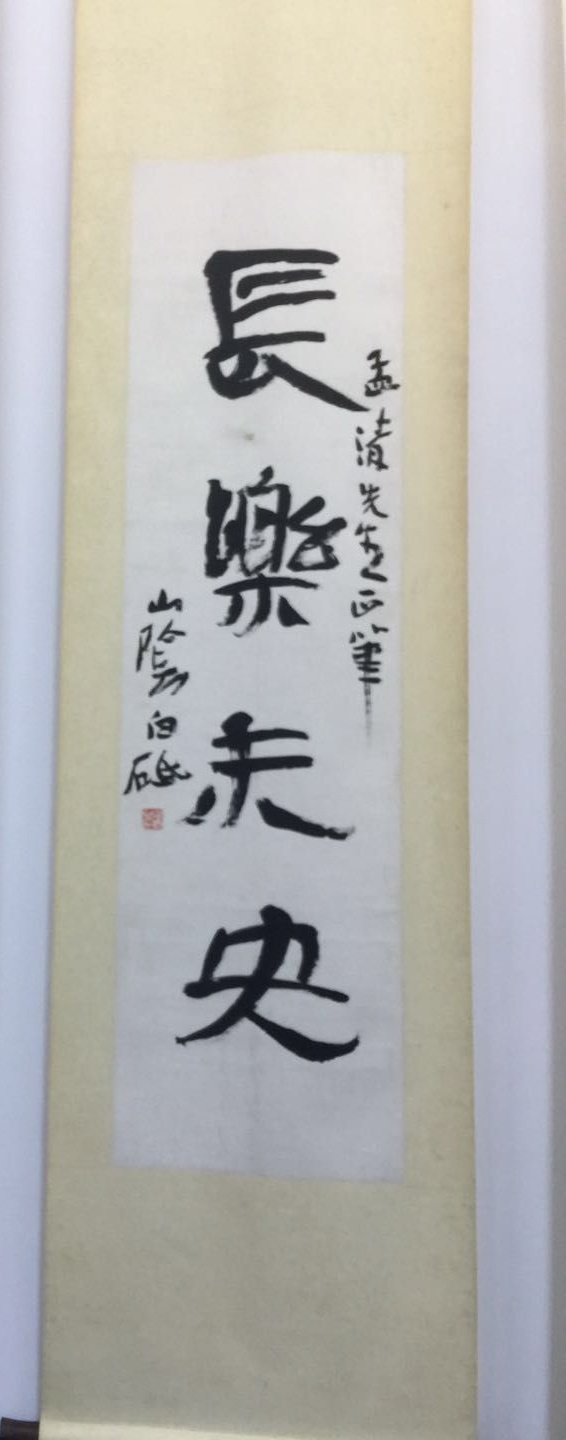 孟清先生正笔
長樂未央
山陰白砥